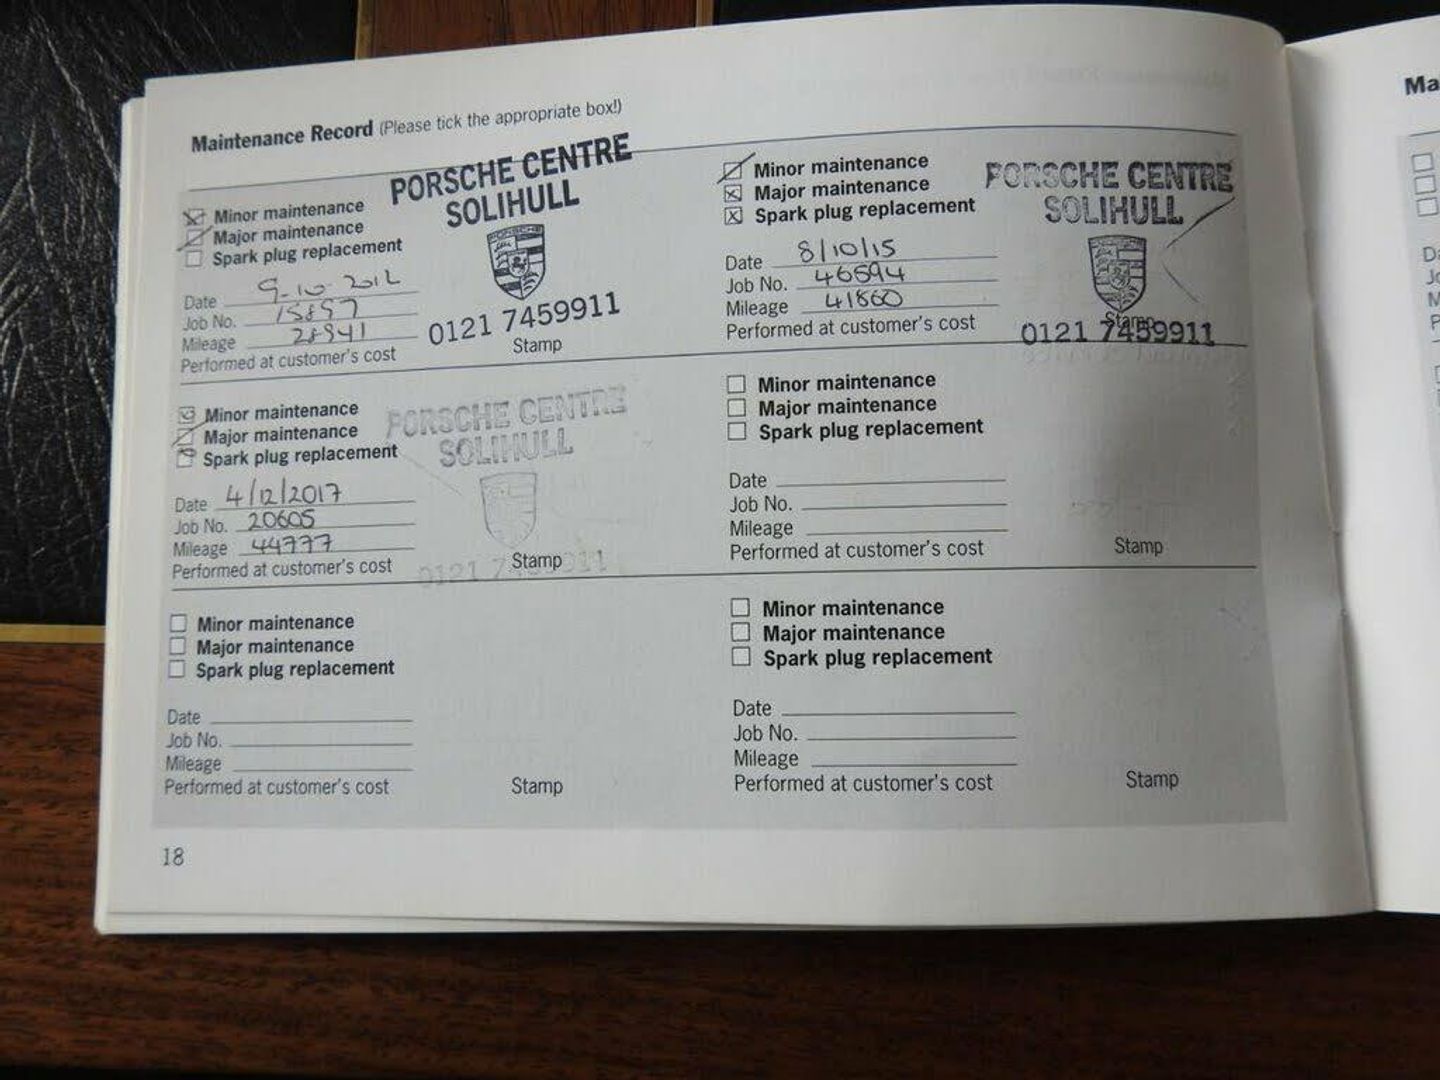 Maintenance Record (Please tick the appropriate box!)
Minor maintenance
Major maintenance
Spark plug replacement
Date 9-10-2012
Job No. 15897
Mileage 28941
Performed at customer's cost
PORSCHE CENTRE
SOLIHULL
PORSCHE
0121 7459911
Stamp
Minor maintenance
Major maintenance
Spark plug replacement
Date 8/10/15
Job No. 46594
Mileage 41860
Performed at customer's cost
PORSCHE CENTRE
SOLIHULL
Stamp
0121 7459911
Minor maintenance
Major maintenance
Spark plug replacement
Date 4/12/2017
Job No. 20605
Mileage 44777
Performed at customer's cost
PORSCHE CENTRE
SOLIHULL
Stamp
0121 7459911
Minor maintenance
Major maintenance
Spark plug replacement
Date
Job No.
Mileage
Performed at customer's cost
Stamp
Minor maintenance
Major maintenance
Spark plug replacement
Date
Job No.
Mileage
Performed at customer's cost
Stamp
Minor maintenance
Major maintenance
Spark plug replacement
Date
Job No.
Mileage
Performed at customer's cost
Stamp
18
Ma